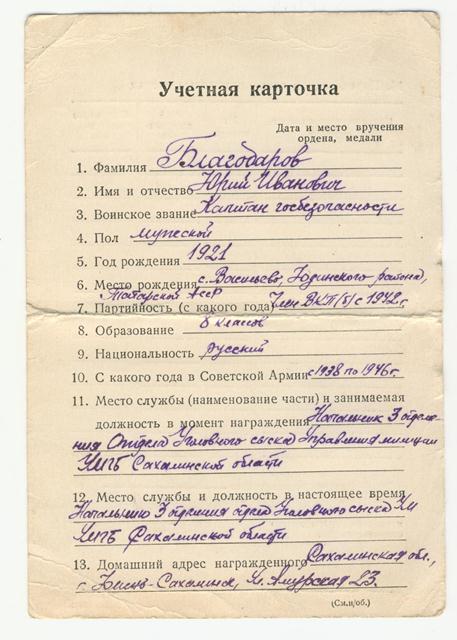 Учетная карточка
Дата и место вручения
ордена, медали
1. Фамилия Благодаров
2. Имя и отчество Юрий Иванович
3. Воинское звание Капитан госбезопасности
4. Пол мужской
5. Год рождения 1921
6. Место рождения с. Васильево, Юдинского района,
Татарской АССР
7. Партийность (с какого года) Член ВКП/б/ с 1942 г.
8. Образование 8 классов
9. Национальность русский
10. С какого года в Советской Армии с 1938 по 1946 г.
11. Место службы (наименование части) и занимаемая
должность в момент награждения Начальник 3 отделе-
ния Отдела Уголовного сыска Управления милиции
УМГБ Сахалинской области
12. Место службы и должность в настоящее время
Начальник 3 отдела Уголовного сыска УМ
УМГБ Сахалинской области
13. Домашний адрес награжденного Сахалинская обл.,
г. Южно-Сахалинск, ул. Амурская 23.
(См.н/об.)